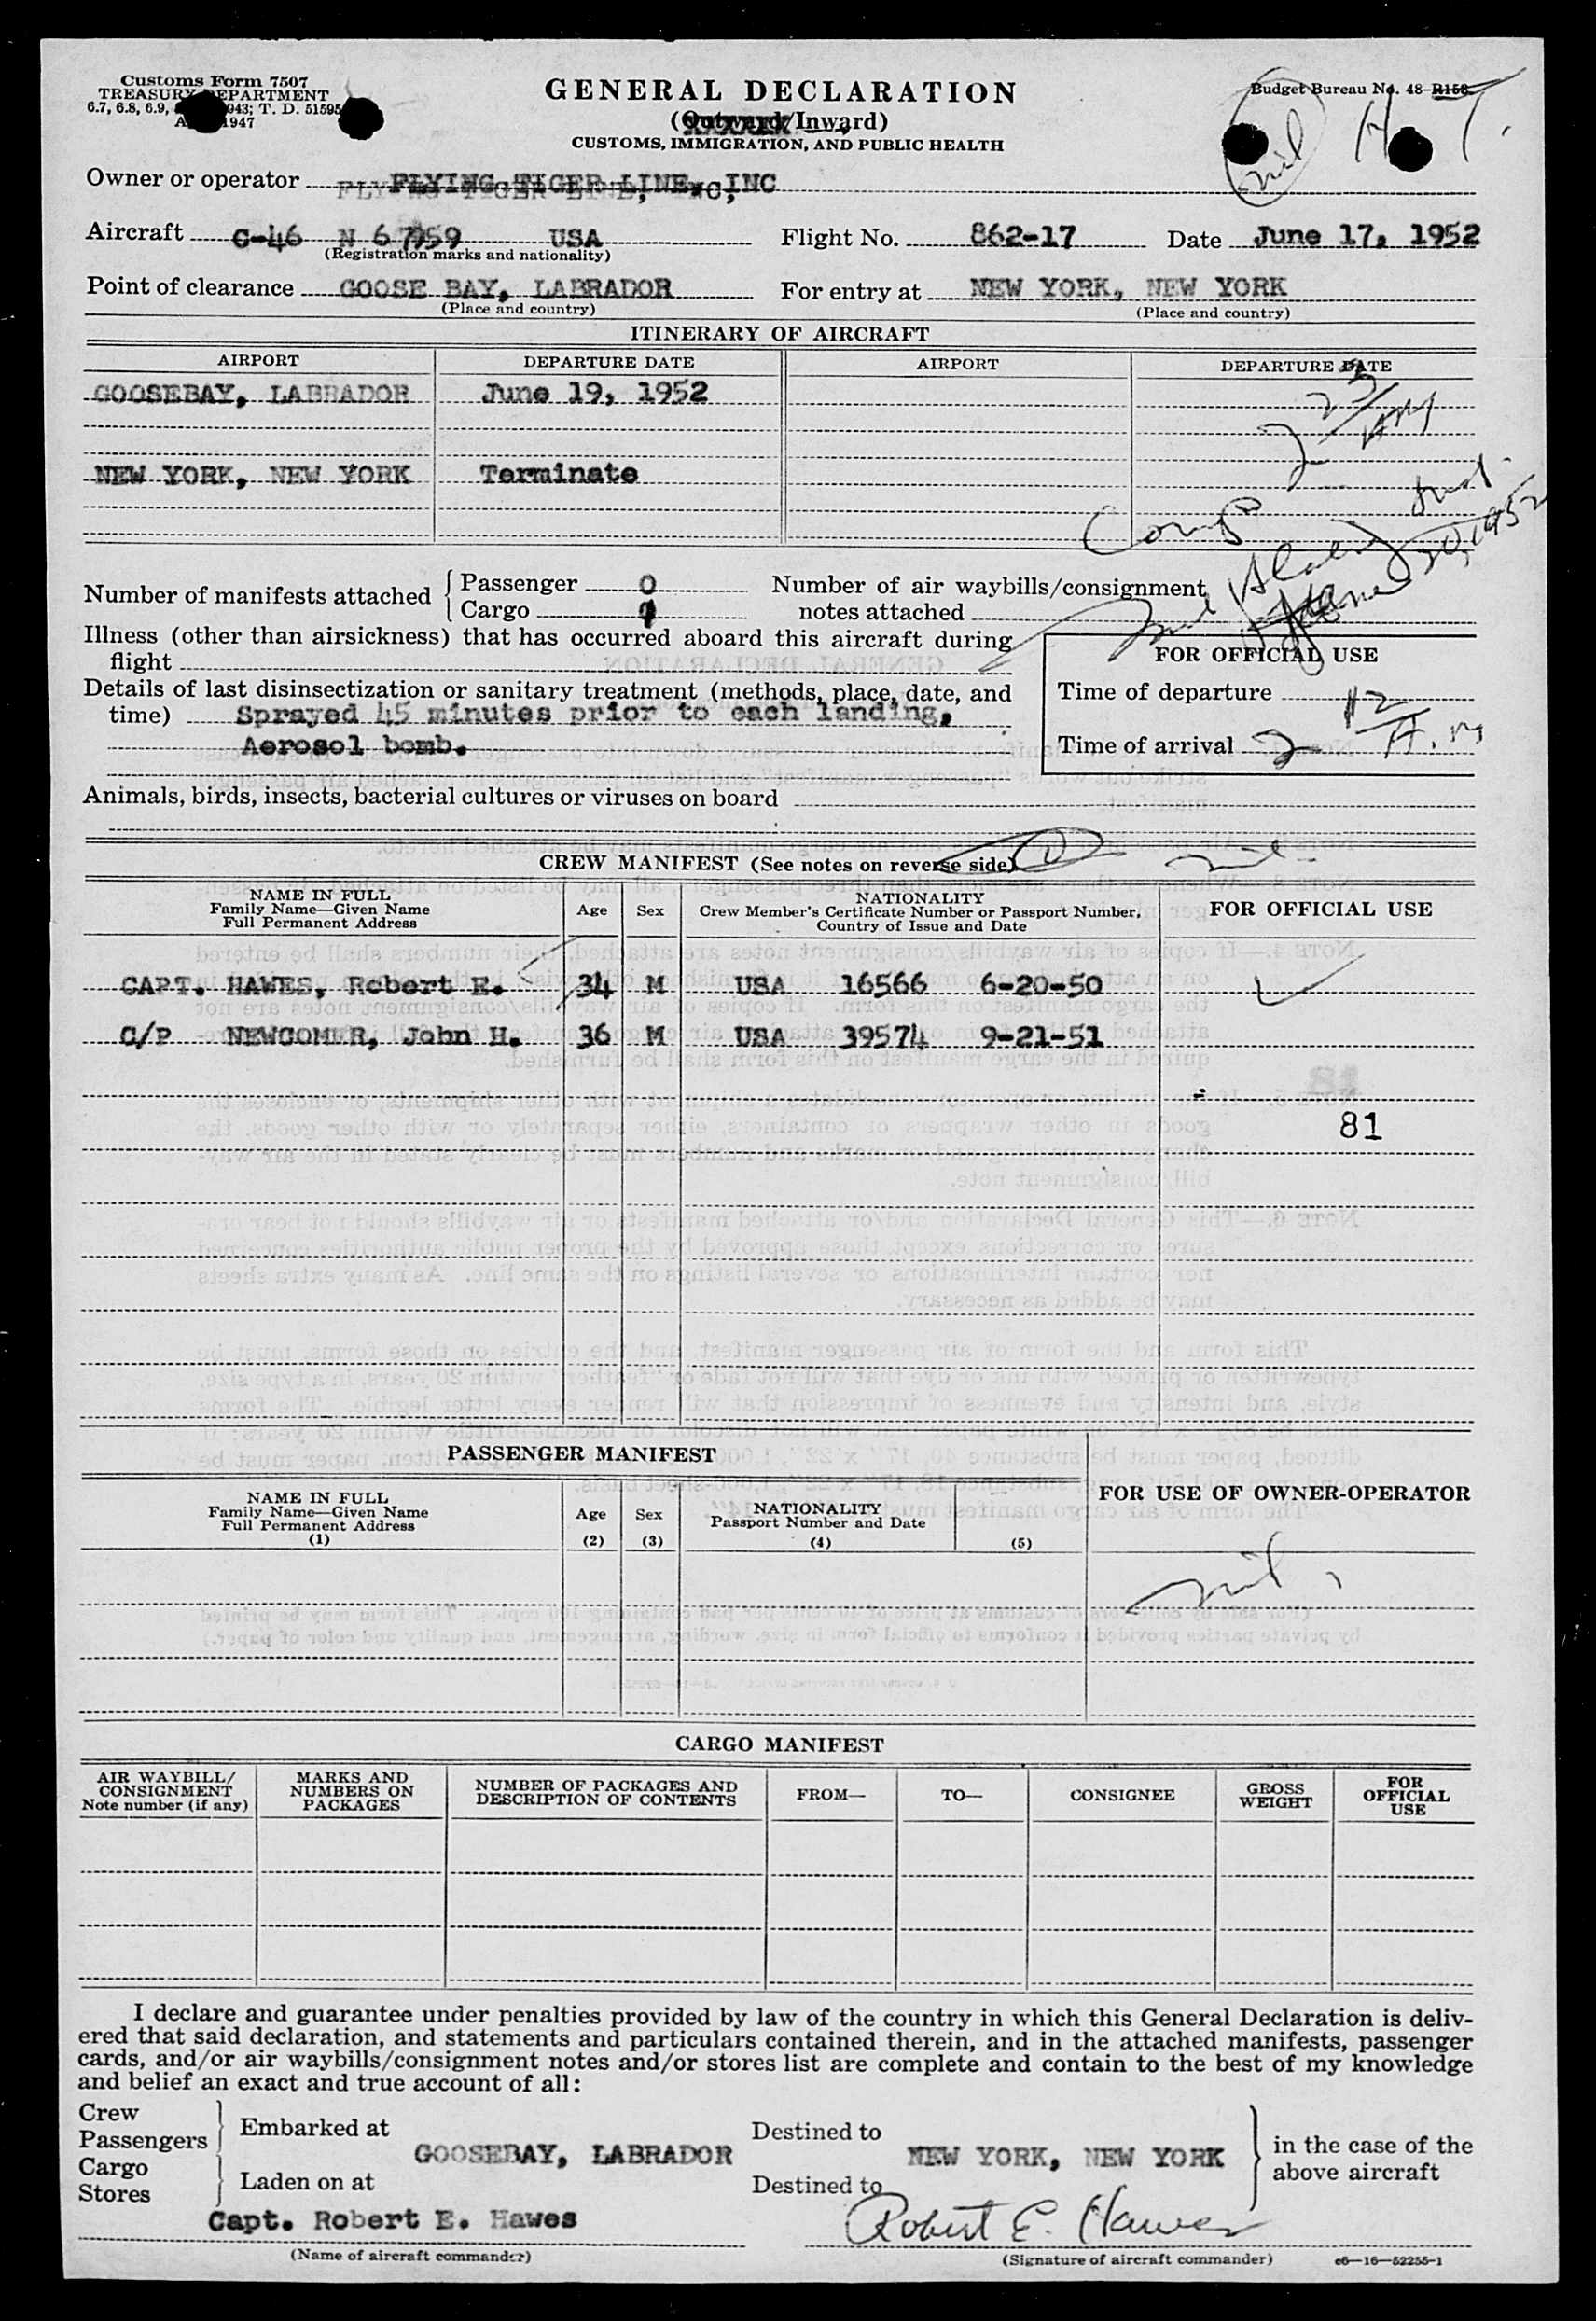 Customs Form 7507
TREASURY DEPARTMENT
6.7, 6.8, 6.9, 943; T. D. 51595
1947
GENERAL DECLARATION
(Outward/Inward)
CUSTOMS, IMMIGRATION, AND PUBLIC HEALTH
Budget Bureau No. 48-R158
nil
Owner or operator FLYING TIGER LINE, INC
Aircraft C-46 N 67959 USA Flight No. 862-17 Date June 17, 1952
(Registration marks and nationality)
Point of clearance GOOSE BAY, LABRADOR For entry at NEW YORK, NEW YORK
(Place and country) (Place and country)
ITINERARY OF AIRCRAFT
AIRPORT DEPARTURE DATE AIRPORT DEPARTURE DATE
GOOSEBAY, LABRADOR June 19, 1952
NEW YORK, NEW YORK Terminate
Number of manifests attached Passenger 0 Number of air waybills/consignment
Cargo notes attached
Illness (other than airsickness) that has occurred aboard this aircraft during
flight
FOR OFFICIAL USE
Details of last disinsectization or sanitary treatment (methods, place, date, and
time) Sprayed 45 minutes prior to each landing.
Aerosol bomb.
Time of departure
Time of arrival 2 A.M
Animals, birds, insects, bacterial cultures or viruses on board
CREW MANIFEST (See notes on reverse side) 1 nil
NAME IN FULL
Family Name—Given Name
Full Permanent Address
Age Sex
NATIONALITY
Crew Member's Certificate Number or Passport Number,
Country of Issue and Date
FOR OFFICIAL USE
CAPT. HAWES, Robert E. 34 M USA 16566 6-20-50
C/P NEWCOMER, John H. 36 M USA 39574 9-21-51
81
PASSENGER MANIFEST
NAME IN FULL
Family Name—Given Name
Full Permanent Address
(1)
Age
(2)
Sex
(3)
NATIONALITY
Passport Number and Date
(4)
(5)
FOR USE OF OWNER-OPERATOR
nil
CARGO MANIFEST
AIR WAYBILL/
CONSIGNMENT
Note number (if any)
MARKS AND
NUMBERS ON
PACKAGES
NUMBER OF PACKAGES AND
DESCRIPTION OF CONTENTS
FROM— TO— CONSIGNEE
GROSS
WEIGHT
FOR
OFFICIAL
USE
I declare and guarantee under penalties provided by law of the country in which this General Declaration is deliv-
ered that said declaration, and statements and particulars contained therein, and in the attached manifests, passenger
cards, and/or air waybills/consignment notes and/or stores list are complete and contain to the best of my knowledge
and belief an exact and true account of all:
Crew
Passengers
Cargo
Stores
Embarked at
GOOSEBAY, LABRADOR
Laden on at
Destined to
NEW YORK, NEW YORK
Destined to
in the case of the
above aircraft
Capt. Robert E. Hawes
(Name of aircraft commander)
Robert E. Hawes
(Signature of aircraft commander)
c6—16—52255-1